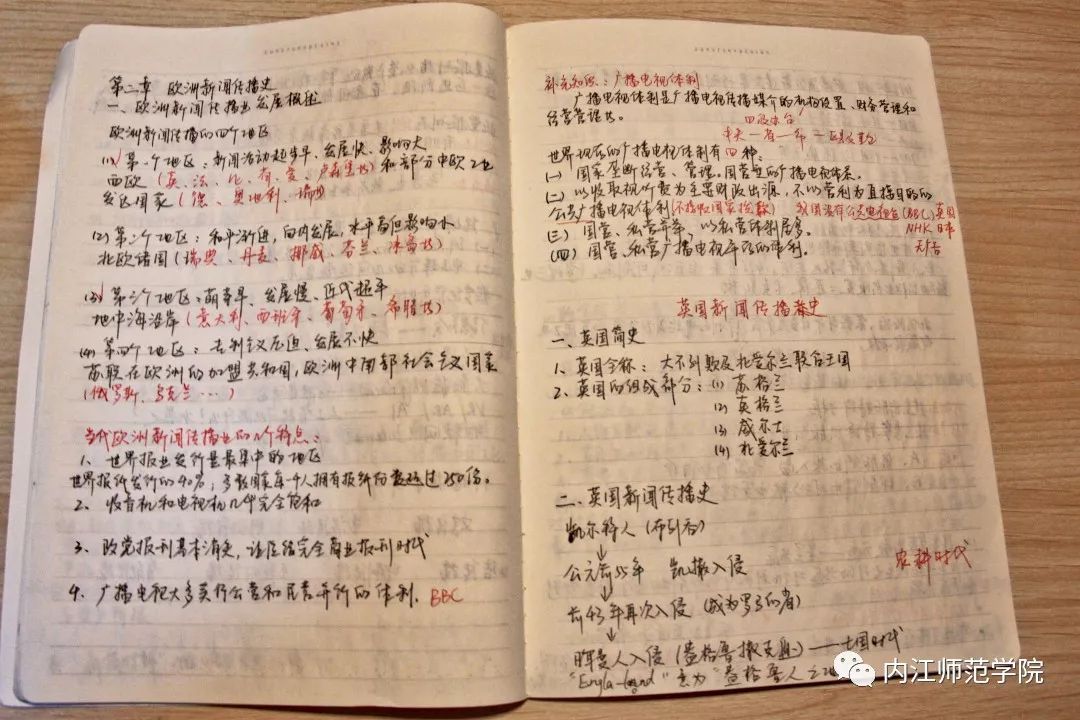 第二章 欧洲新闻传播史
一、欧洲新闻传播业发展概述
欧洲新闻传播的四个地区
(1) 第一个地区：新闻活动起步早、发展快、影响大
西欧（英、法、比、荷、卢森堡等）和部分中欧工业
发达国家（德、奥地利、瑞士）
(2) 第二个地区：和平渐进，自由发展，水平高但影响小
北欧诸国（瑞典、丹麦、挪威、芬兰、冰岛等）
(3) 第三个地区：萌芽早、发展慢、近代起平
地中海沿岸（意大利、西班牙、葡萄牙、希腊等）
(4) 第四个地区：专制主义压迫、发展不快
苏联在欧洲的加盟共和国，欧洲中南部社会主义国家
（俄罗斯、乌克兰…）
当代欧洲新闻传播业的几个特点：
1、世界报业发行量最集中的地区
世界报纸发行的40%；多数国家每千人拥有报纸份数超过250份。
2、收音机和电视机几乎完全饱和
3、政党报刊基本消失，让位给完全商业报刊时代
4、广播电视大多实行公营和民营并行的体制. BBC
补充知识：广播电视体制
广播电视体制是广播电视传播媒介的机构设置、财务管理和
经营管理等。
四级办台
中央—省—市—
世界现存的广播电视体制有四种：
(一) 国家垄断经营、管理。国营型的广播电视体系。
(二) 以收取视听费为主要财政出源，不以营利为直接目的的
公共广播电视体制（不接收国家拨款） 我国没有公共电视台 (BBC) 英国
NHK 日本
(三) 国营、私营并举，以私营体制居多。
(四) 国营、私营广播电视并存的体制。
无广告
英国新闻传播史
一、英国简史
1、英国全称：大不列颠及北爱尔兰联合王国
2、英国的组成部分：(1) 苏格兰
(2) 英格兰
(3) 威尔士
(4) 北爱尔兰
二、英国新闻传播史
凯尔特人（布列吞）
公元前55年 凯撒入侵
农耕时代
前43年再次入侵（成为罗马的省）
日耳曼人入侵（盎格鲁撒克逊）——七国时代
"Engla-land" 意为"盎格鲁人之
内江师范学院